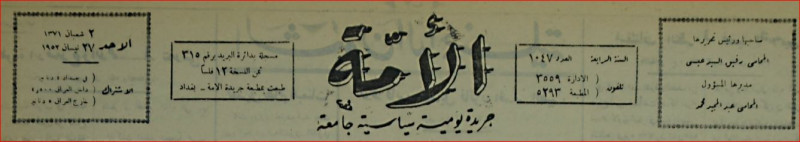 صاحبها ورئيس تحريرها
المحامي رفيق السيد عيسى
مديرها المسؤول
المحامي عبد المجيد محمد
السنة الرابعة العدد ١٠٤٧
تلفون ( الادارة ٣٥٥٩
( المطبعة ٥٢٩٣
الأمة
جريدة يومية سياسية جامعة
مسجلة بدائرة البريد برقم ٣١٥
ثمن النسخة ١٢ فلساً
طبعت بمطبعة جريدة الأمة - بغداد
الاحد ٢ شعبان ١٣٧١
٢٧ نيسان ١٩٥٢
الاشتراك
( في بغداد
( داخل العراق
( خارج العراق